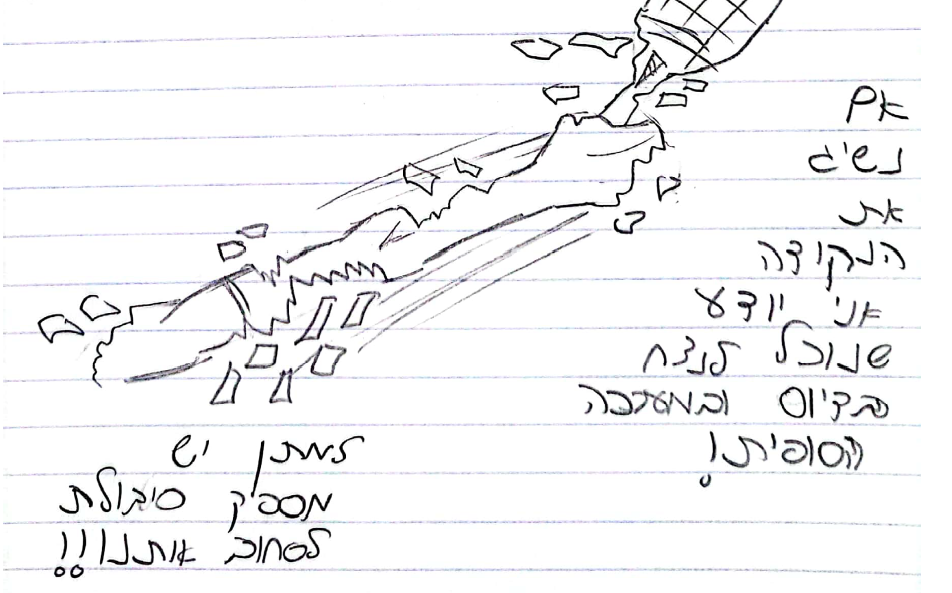 אם
נשיג
את
הנקודה
אני יודע
שנוכל לנצח
בדיוס ובמערכה
הסופית!
למתן יש
מספיק סיבולת
לסחוב אותנו!!